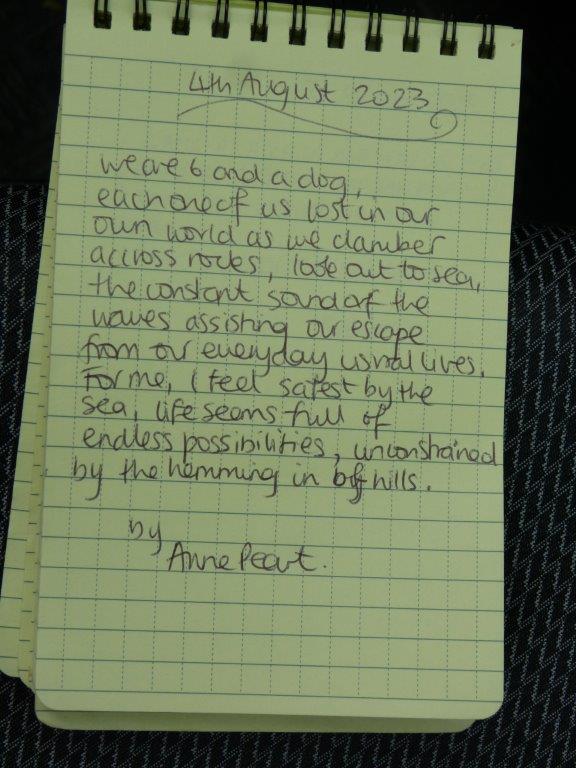 4th August 2023
we are 6 and a dog,
each one of us lost in our
own world as we clamber
accross rocks, look out to sea,
the constant sound of the
waves assisting our escape
from our everyday usual lives.
For me, I feel safest by the
sea, life seems full of
endless possibilities, unconstrained
by the hemming in of hills.
by
Anne Peart.